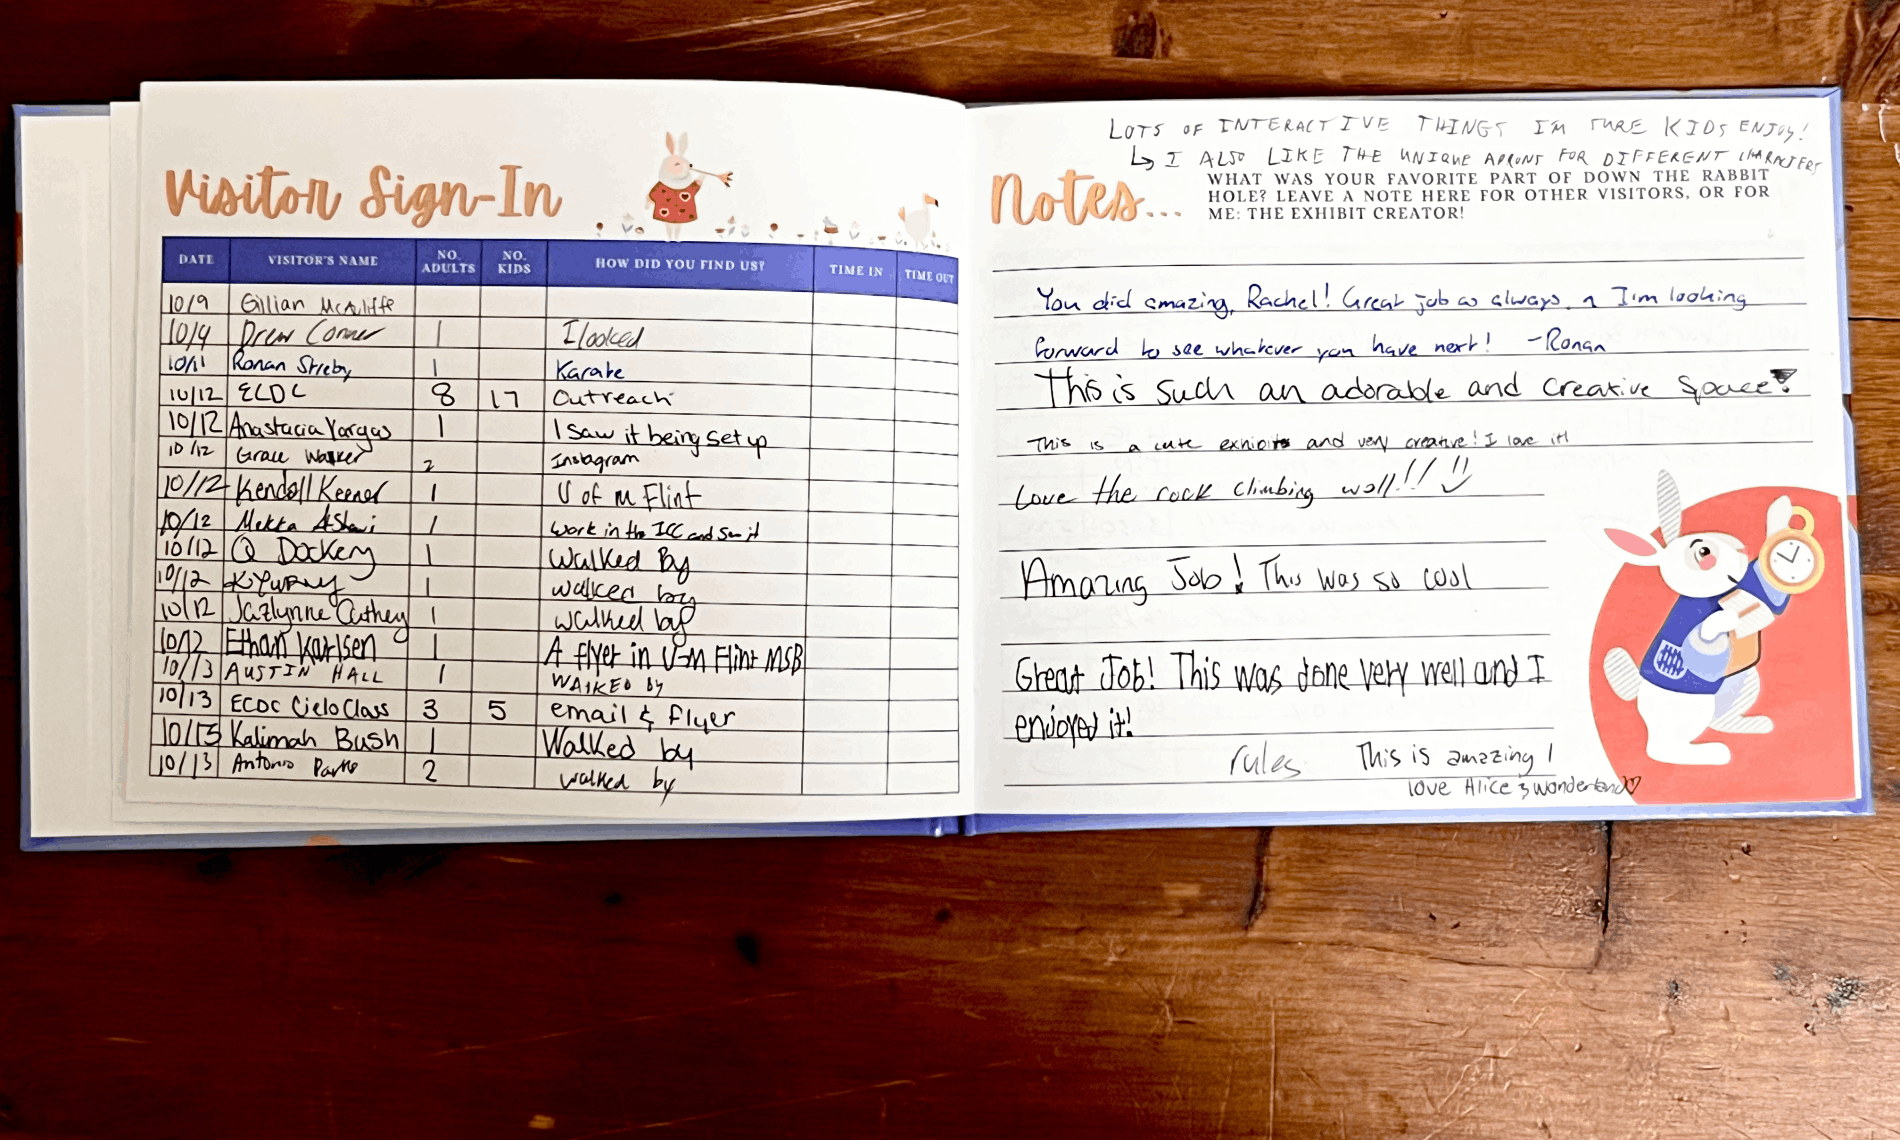 Visitor Sign-In
DATE VISITOR'S NAME NO. ADULTS NO. KIDS HOW DID YOU FIND US? TIME IN TIME OUT
10/9 Gillian McAuliffe
10/9 Drew Conner 1 I looked
10/11 Ronan Strieby 1 Karate
10/12 ECDC 8 17 Outreach
10/12 Anastacia Vargas 1 I saw it being set up
10/12 Grace Walker 2 Instagram
10/12 Kendall Keener 1 U of M Flint
10/12 Mekka 1 Work in the ICC and saw it
10/12 Q Dockery 1 Walked By
10/12 1 walked by
10/12 Jazlynne Cathey 1 walked by
10/12 Ethan Karlsen 1 A flyer in U-M Flint MSB
10/13 AUSTIN HALL 1 WALKED by
10/13 ECDC Cielo Class 3 5 email & flyer
10/13 Kalimah Bush 1 Walked by
10/13 Antonio 2 walked by
LOTS OF INTERACTIVE THINGS I'M SURE KIDS ENJOY!
↳ I ALSO LIKE THE UNIQUE APRONS FOR DIFFERENT CHARACTERS
Notes...
WHAT WAS YOUR FAVORITE PART OF DOWN THE RABBIT
HOLE? LEAVE A NOTE HERE FOR OTHER VISITORS, OR FOR
ME: THE EXHIBIT CREATOR!
You did amazing, Rachel! Great job as always. I'm looking
forward to see whatever you have next! -Ronan
This is such an adorable and creative space!
This is a cute exhibit and very creative! I love it!
Love the rock climbing wall!!
Amazing Job! This was so cool
Great Job! This was done very well and I
enjoyed it!
rules This is amazing I
love Alice & Wonderland